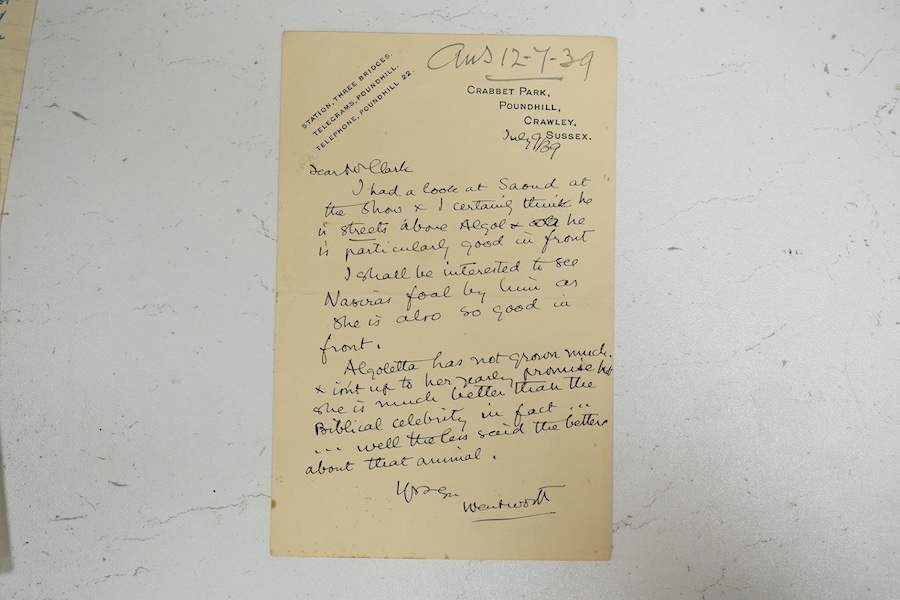 Ans 12-7-39
STATION, THREE BRIDGES.
TELEGRAMS, POUNDHILL.
TELEPHONE, POUNDHILL 22.
CRABBET PARK,
POUNDHILL,
CRAWLEY,
SUSSEX.
July 9/39
Dear Mr Clark
I had a look at Saoud at
the Show & I certainly think he
is streets above Algol & he
is particularly good in front
I shall be interested to see
Nasira's foal by him as
she is also so good in
front.
Algoletta has not grown much.
& isn't up to her early promise but
she is much better than the
Biblical celebrity in fact ...
... well the less said the better
about that animal.
Wentworth